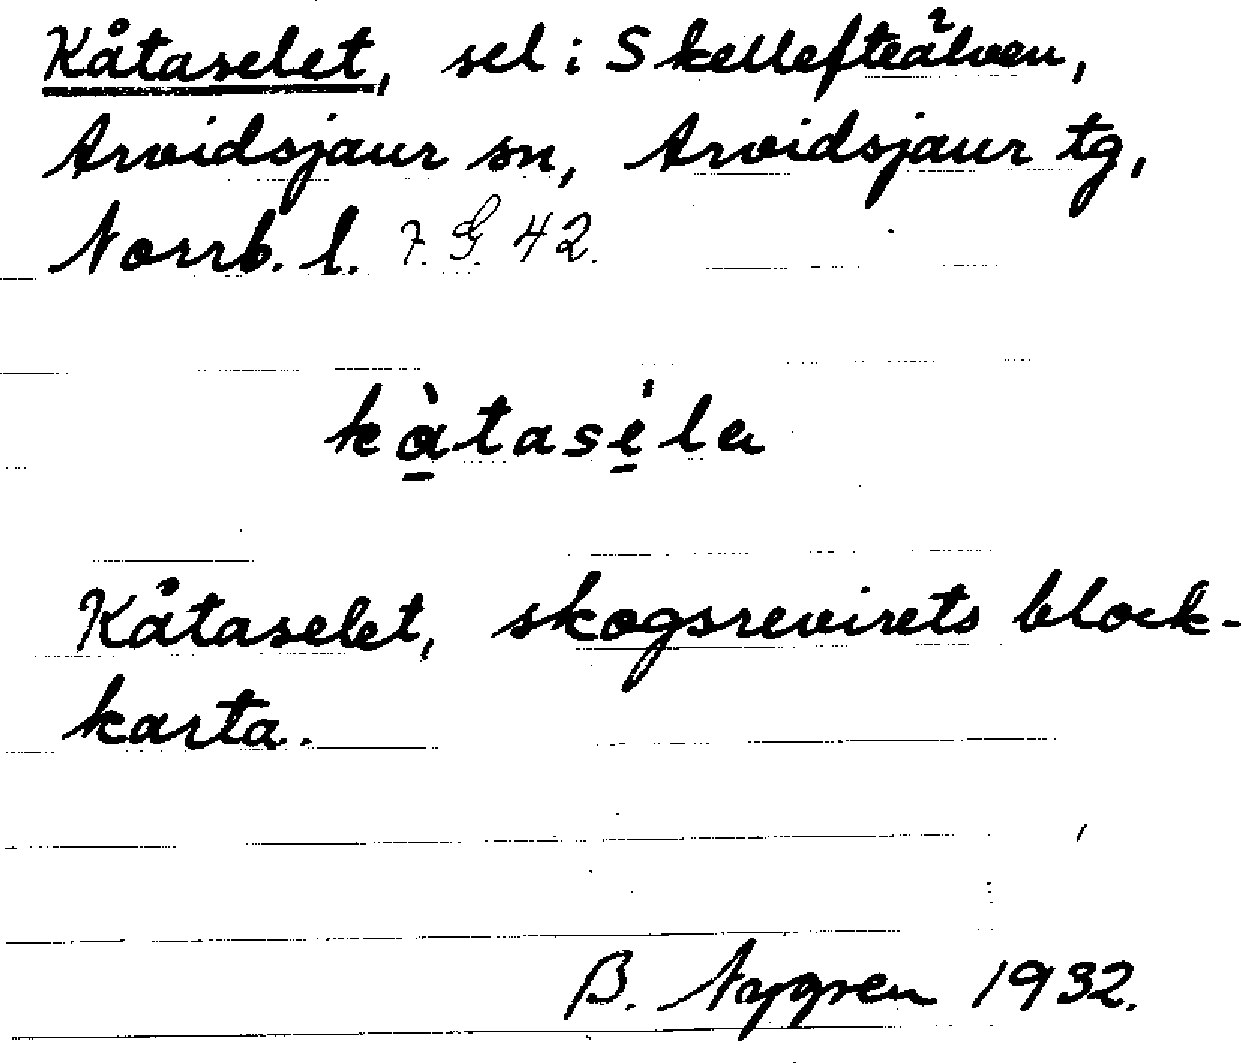 Kåtaselet, sel i Skellefteälven,
Arvidsjaur sn, Arvidsjaur tg,
Norrb. l. 7. G. 42.
kàtaséla
Kåtaselet, skogsrevirets block-
karta.
B. Nygren 1932.